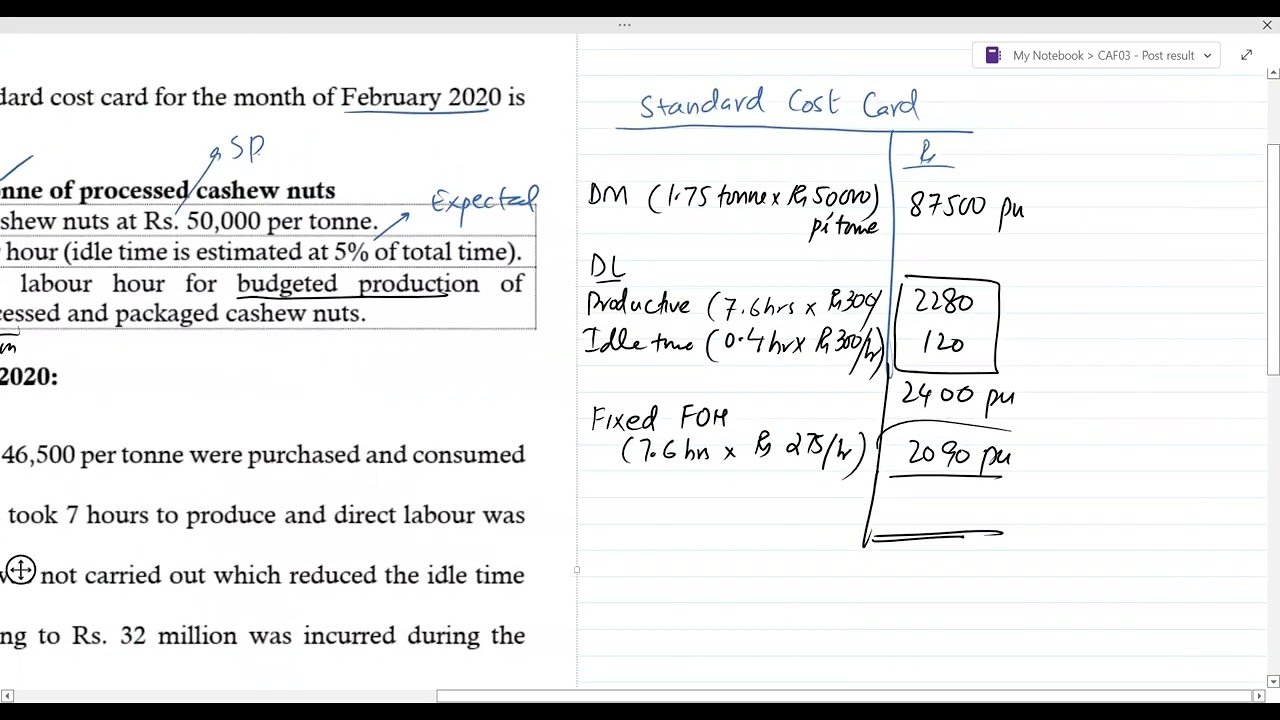 My Notebook > CAF03 - Post result
dard cost card for the month of February 2020 is
SP
nne of processed cashew nuts
Expected
shew nuts at Rs. 50,000 per tonne.
hour (idle time is estimated at 5% of total time).
labour hour for budgeted production of
cessed and packaged cashew nuts.
2020:
46,500 per tonne were purchased and consumed
took 7 hours to produce and direct labour was
not carried out which reduced the idle time
ng to Rs. 32 million was incurred during the
Standard Cost Card
Rs
DM (1.75 tonne x Rs 50000) 87500 pu
DL
Productive (7.6 hrs x Rs 300/ 2280
Idle time (0.4 hr x Rs 300/hr) 120
2400 pu
Fixed FOH
(7.6 hrs x Rs 275/hr) 2090 pu